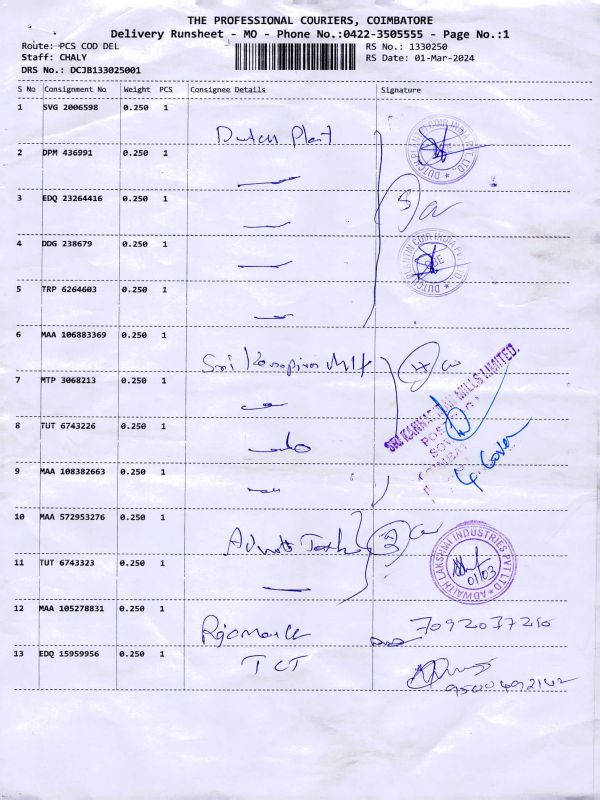 THE PROFESSIONAL COURIERS, COIMBATORE
Delivery Runsheet - MO - Phone No.:0422-3505555 - Page No.:1
Route: PCS COD DEL RS No.: 1330250
Staff: CHALY RS Date: 01-Mar-2024
DRS No.: DCJB133025001
S No Consignment No Weight PCS Consignee Details Signature
1 SVG 2006598 0.250 1
Dutch Plant
DUTCH PLANTIN COIR INDIA PVT LTD
2 DPM 436991 0.250 1
3 EDQ 23264416 0.250 1
5
4 DDG 238679 0.250 1
DUTCH PLANTIN COIR INDIA PVT LTD
5 TRP 6264603 0.250 1
6 MAA 106883369 0.250 1
Sri
4
SRI KANNAPIRAN MILLS LIMITED.
7 MTP 3068213 0.250 1
8 TUT 6743226 0.250 1
4 Cover
9 MAA 108382663 0.250 1
10 MAA 572953276 0.250 1
2
ADWAITH LAKSHMI INDUSTRIES PVT LTD
01/03
11 TUT 6743323 0.250 1
12 MAA 105278831 0.250 1
13 EDQ 15959956 0.250 1
TCT